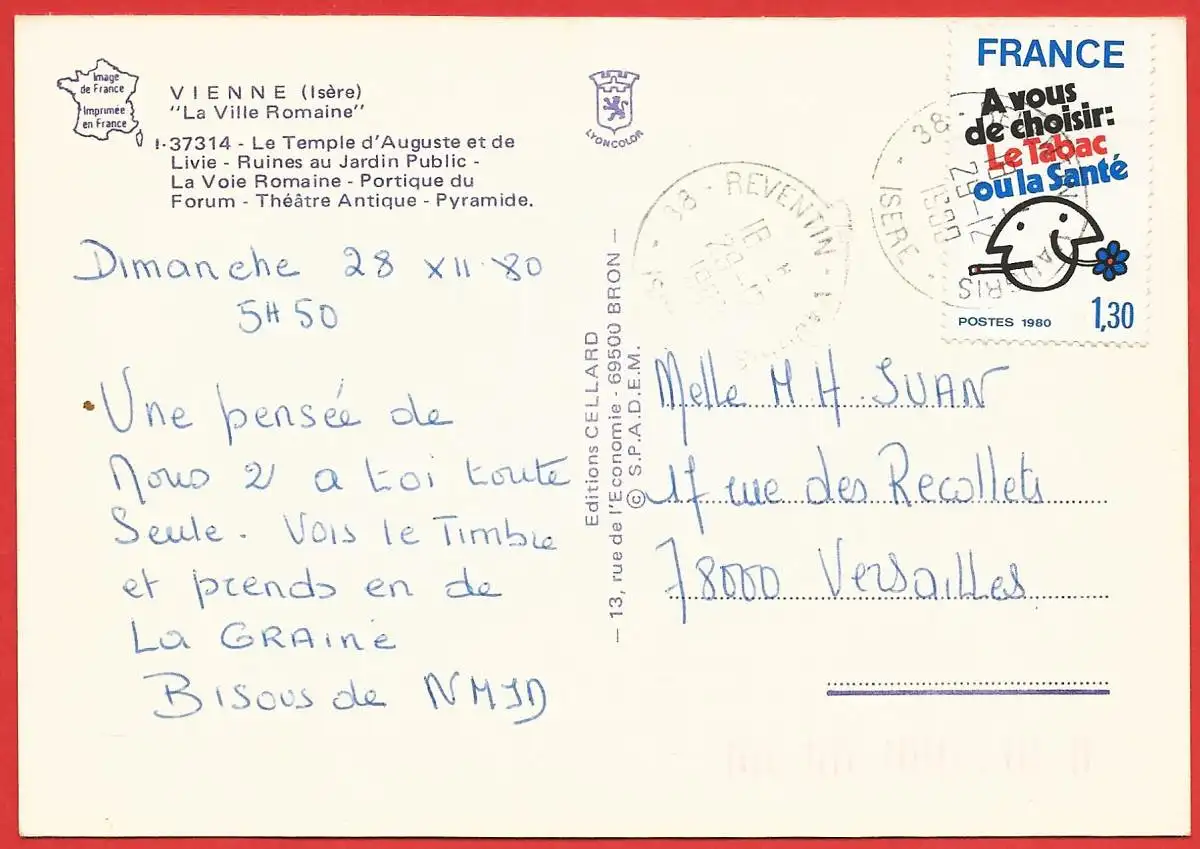 Image
de France
Imprimée
en France
VIENNE (Isère)
"La Ville Romaine"
I-37314 - Le Temple d'Auguste et de
Livie - Ruines au Jardin Public -
La Voie Romaine - Portique du
Forum - Théâtre Antique - Pyramide.
Dimanche 28 XII.80
5H50
Une pensée de
Nous 2 a toi toute
Seule. Vois le Timbre
et prends en de
La GRAine
Bisous de NMJD
LYONCOLOR
Editions CELLARD
- 13, rue de l'Economie - 69500 BRON -
© S.P.A.D.E.M.
38 - REVENTIN -
18
38 -
ISERE
29-12
1980
FRANCE
A vous
de choisir:
Le Tabac
ou la Santé
POSTES 1980
1,30
Melle M H JUAN
17 rue des Recollets
78000 Versailles